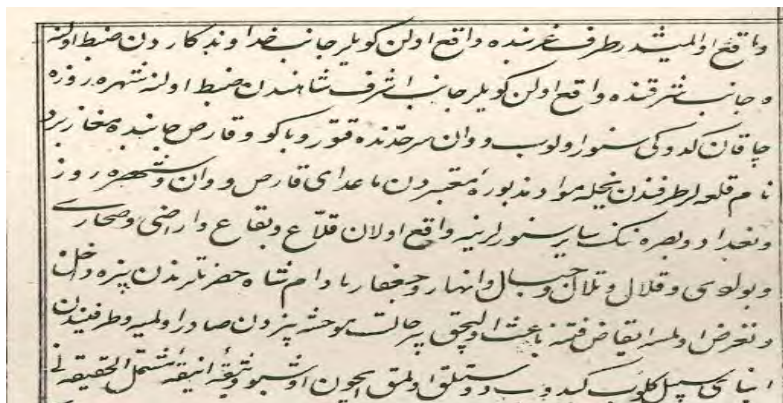 واقع اولمیشدر طرف غربنده واقع اولن کویلر جانب خداوندکاردن ضبط اولنه
و جانب شرقنده واقع اولن کویلر جانب اشرف شاهیدن ضبط اولنه شهره روزه
چاقان کدوکی سنور اولوب و وان سرحدنده قتور و باکو و قارص جانبنده مغازبرد
نام قلعه لر طرفندن نجیله مواد مذبوره معتبردن ماعدای قارص و وان و شهره روز
و بغداد و بصره نک سایر سنورلرینه واقع اولان قلاع و بقاع و اراضی و صحاری
و قلال و تلال و جبال و انهار و مادام شاه حضرتلرندن بزه دخل
و تعرض اولمیه ایقاض فتنه باعث اولیجق بر حالت موحشه بزدن صادر اولمیه و طرفیندن
کلوب کیدوب دوستلق اولمق ایچون اشبو وثیقه انیقه مشتمل الحقیقه